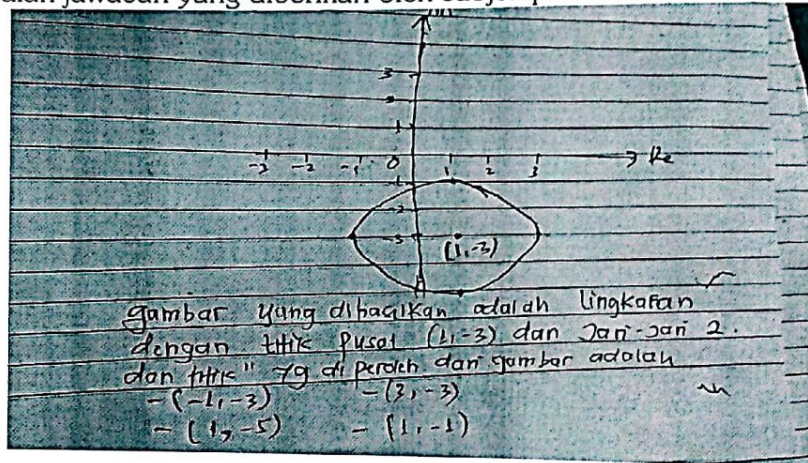 jawaban yang diberikan oleh
Im
3
2
1
-3 -2 -1 0 1 2 3 Re
-1
-2
-3
(1,-3)
gambar yang dibagikan adalah lingkaran
dengan titik pusat (1,-3) dan Jari-Jari 2.
dan titik" yg di peroleh dari gambar adalah
-(-1,-3) -(3,-3)
-(1,-5) -(1,-1)